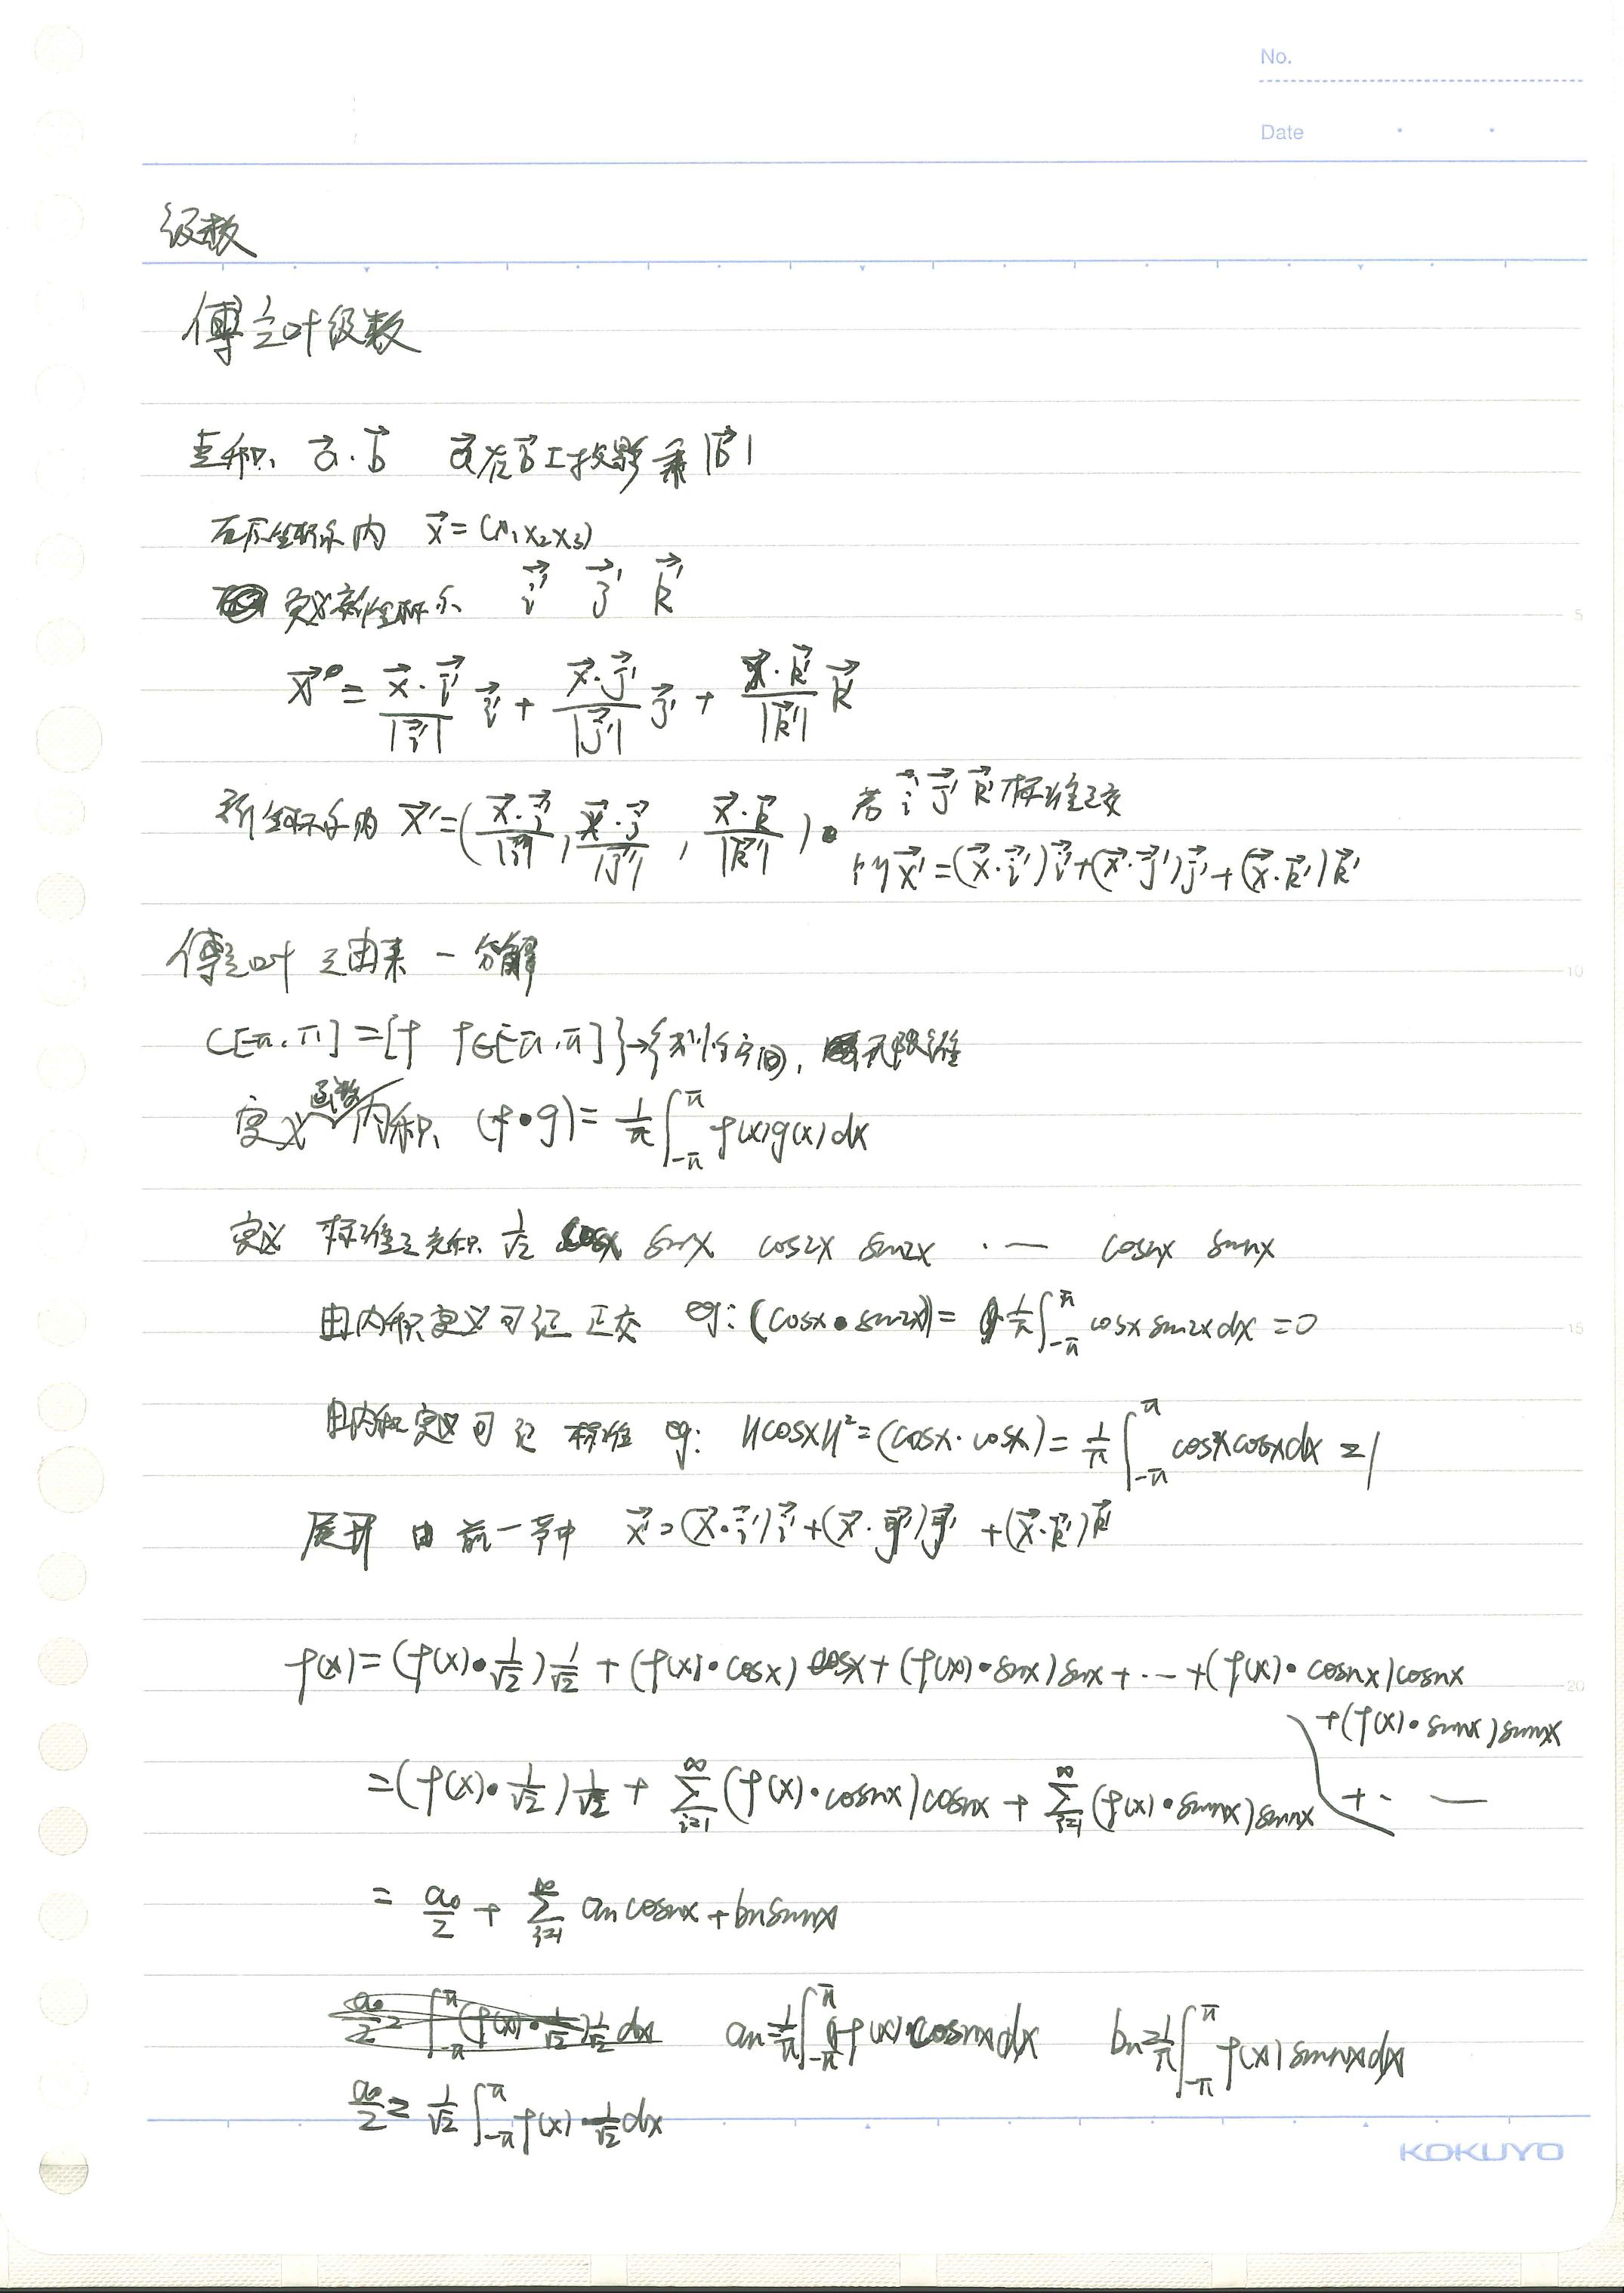 No.
Date
级数
傅立叶级数
点积 a⃗·b⃗ a⃗在b⃗上投影乘|b⃗|
在原坐标系内 x⃗=(x₁x₂x₃)
定义新坐标系 i⃗' j⃗' k⃗'
x⃗' = (x⃗·i⃗')/|i⃗'| i⃗' + (x⃗·j⃗')/|j⃗'| j⃗' + (x⃗·k⃗')/|k⃗'| k⃗'
新坐标系内 x⃗'=((x⃗·i⃗')/|i⃗'|, (x⃗·j⃗)/|j⃗'|, (x⃗·k⃗)/|k⃗'|). 若 i⃗' j⃗' k⃗' 标准正交
则 x⃗'=(x⃗·i⃗')i⃗'+(x⃗·j⃗')j⃗'+(x⃗·k⃗')k⃗'
傅立叶之由来 — 分解
C[-π,π]={f f∈[-π,π]}→{线性空间, 无限维
定义函数内积 (f•g)= 1/π ∫_{-π}^{π} f(x)g(x)dx
定义 标准正交积 1/√2 cosx sinx cos2x sin2x ·— cosnx sinnx
由内积定义可证 正交 eg: (cosx•sin2x)= 1/π ∫_{-π}^{π} cosx sin2x dx =0
由内积定义可证 标准 eg: ‖cosx‖²=(cosx·cosx)= 1/π ∫_{-π}^{π} cosx cosx dx =1
展开 由前一节中 x⃗'=(x⃗·i⃗')i⃗'+(x⃗·j⃗')j⃗'+(x⃗·k⃗')k⃗'
f(x)=(f(x)•1/√2)1/√2 + (f(x)•cosx)cosx+(f(x)•sinx)sinx+·—+(f(x)•cosnx)cosnx
+(f(x)•sinnx)sinnx
+·—
=(f(x)•1/√2)1/√2 + ∑_{i=1}^{∞}(f(x)•cosnx)cosnx+∑_{i=1}^{∞}(f(x)•sinnx)sinnx
= a₀/2 + ∑_{i=1}^{∞} an cosnx+bn sinnx
a₀/2= ∫_{-π}^{π}(f(x)•1/√2)1/√2 dx an=1/π ∫_{-π}^{π} f(x)•cosnxdx bn=1/π ∫_{-π}^{π} f(x) sinnxdx
a₀/2= 1/√2 ∫_{-π}^{π} f(x)·1/√2 dx
5
10
15
20
KOKUYO